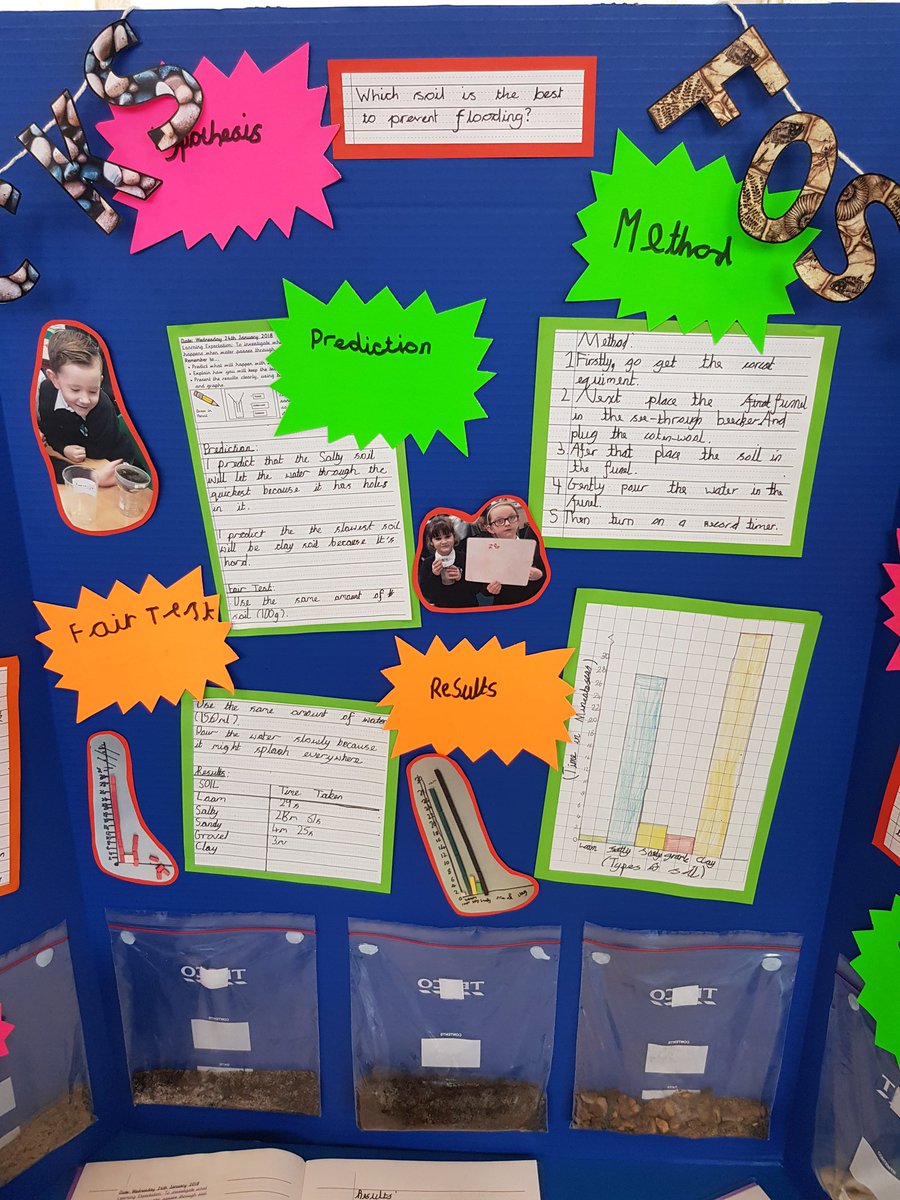 KS
FOS
ypothesis
Which soil is the best
to prevent flooding?
Method
Prediction
Date: Wednesday 24th January 2018
Learning Expectation: To investigate
happens when water passes through
Remember to...
Predict what will happen with
Explain how you will keep the
Present the results clearly, using
and graphs
Prediction:
I predict that the Salty soil
will let the water through the
quickest because it has holes
in it.
I predict the the slowest soil
will be clay soil because it's
hard.
Fair Test:
Use the same amount of
soil (100g).
Method
1 Firstly, go get the
equiment.
2 Next place the funnel
in the see-through beecker. And
plug the coten-wool.
3 After that place the soil in
the funel.
4 Gently pour the water in the
funel.
5 Then turn on a record timer.
Fair Test
Use the same amount of water
(150ml).
Pour the water slowly because
it might splash everywhere
Results:
SOIL Time Taken
Loam 29s
Salty 28m 51s
Sandy 4m 25s
Gravel 3m
Clay
Results
(Time in
Loam salty sandy gravle clay
(Types of soil)
TESCO
CONTENTS
TESCO
CONTENTS
TESCO
CONTENTS
Date: Wednesday 24th January 2018
Learning Expectation: To investigate what
Results